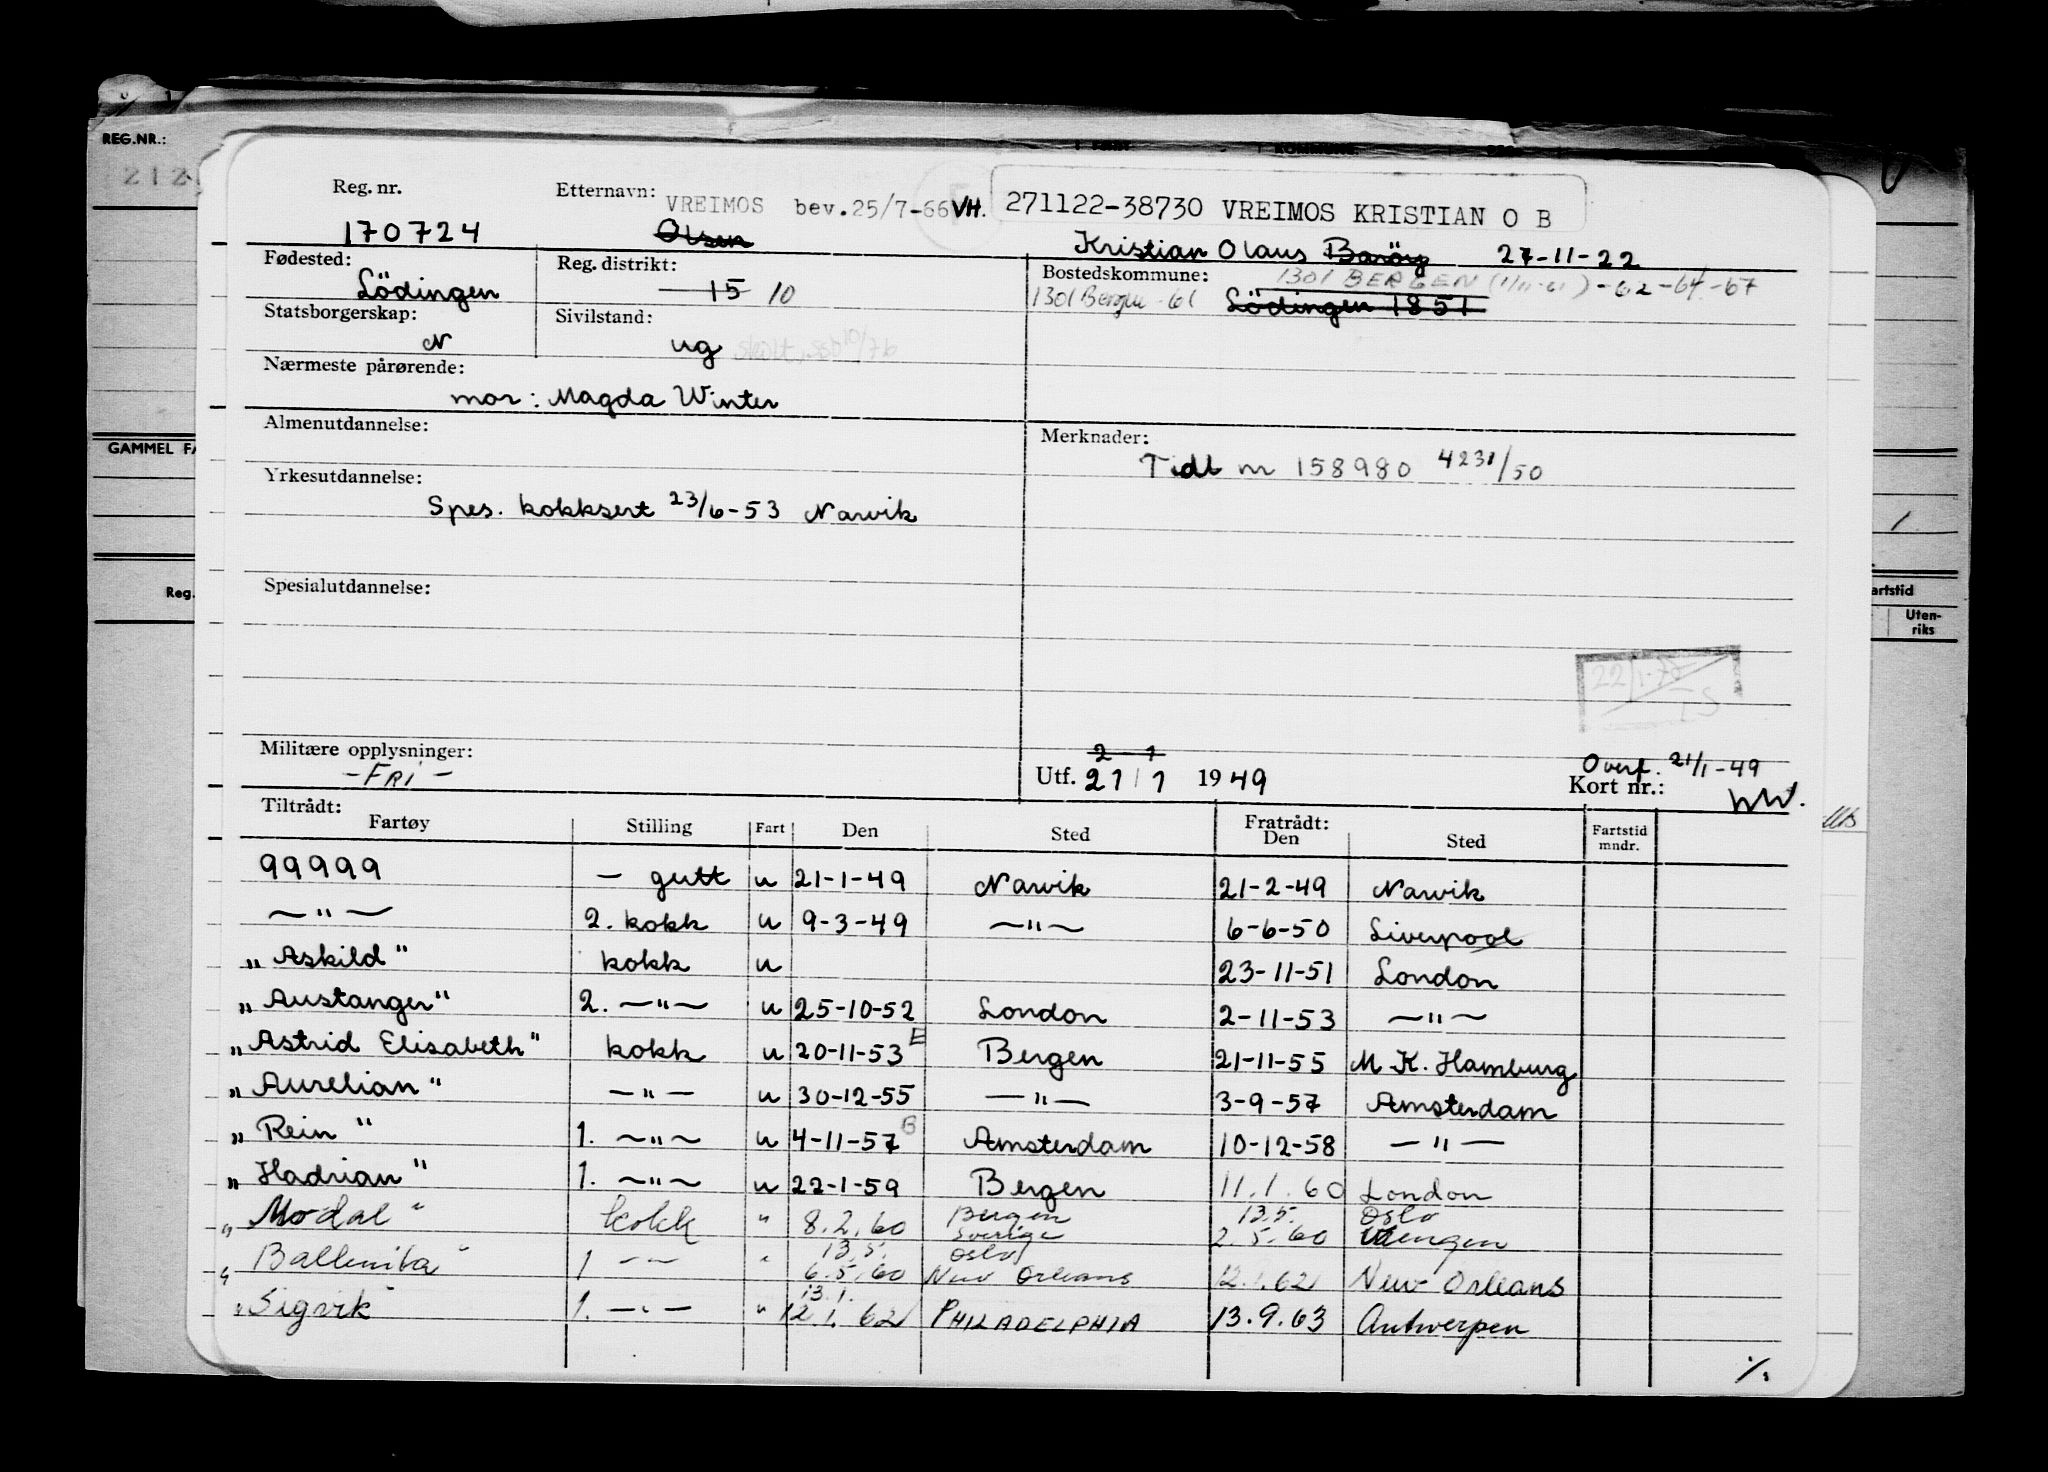 REG.NR.:
212
GAMMEL FA
Reg.
Reg. nr. Etternavn: VREIMOS bev.25/7-66 VH. 271122-38730 VREIMOS KRISTIAN O B
170724 Olsen Kristian Olaus 27-11-22
Fødested: Lödingen Reg. distrikt: 15 10 Bostedskommune: 1301 BERGEN (1/11-61)-62-64-67
1301 Bergen -61 Lödingen 1851
Statsborgerskap: N Sivilstand: ug
Nærmeste pårørende:
mor: Magda Winter
Almenutdannelse: Merknader:
Tidl nr 158980 4231/50
Yrkesutdannelse:
Spes. kokksert 23/6-53 Narvik
Spesialutdannelse:
Militære opplysninger: 2 1
-FRI- Utf. 21/1 1949 Overf. 21/1-49
Kort nr.: WW.
Tiltrådt: Fratrådt:
Fartøy Stilling Fart Den Sted Den Sted Fartstid mndr.
99999 — gutt u 21-1-49 Narvik 21-2-49 Narvik
—"— 2. kokk u 9-3-49 —"— 6-6-50 Liverpool
"Askild" kokk u 23-11-51 London
"Austanger" 2. —"— u 25-10-52 London 2-11-53 —"—
"Astrid Elisabeth" kokk u 20-11-53 E Bergen 21-11-55 M.K. Hamburg
"Aurelian" —"— u 30-12-55 —"— 3-9-57 Amsterdam
"Rein" 1. —"— u 4-11-57 B Amsterdam 10-12-58 —"—
"Hadrian" 1. —"— u 22-1-59 Bergen 11.1.60 London
"Modal" kokk " 8.2.60 Bergen Sverige 13.5. 2.5.60 Oslo
Ballenita" 1 —"— " 13.5. 6.5.60 Oslo New Orleans 12.1.62 New Orleans
"Sigvik" 1. —"— " 13.1. 12.1.62 PHILADELPHIA 13.9.63 Antwerpen
·/.
artstid
Uten-
riks